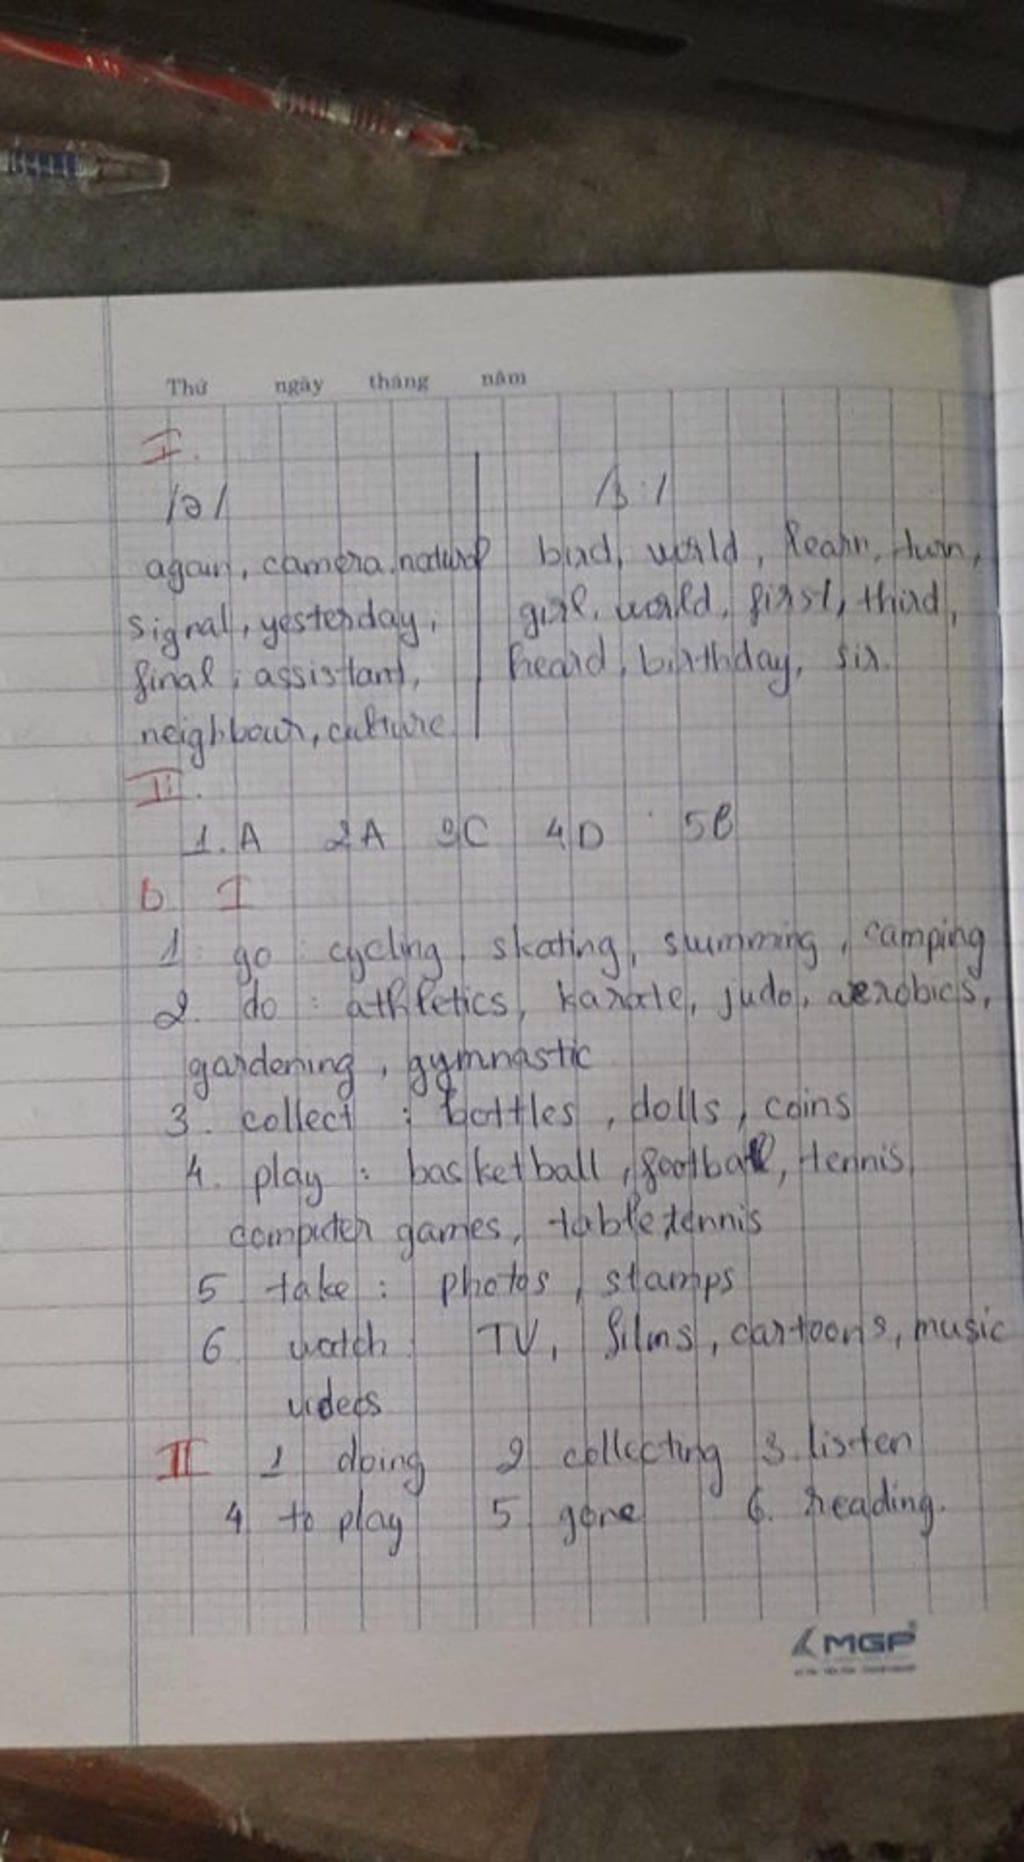 Thứ ngày tháng năm
I.
/ə/ /ɜ:/
again, camera, nature bird, world, learn, turn,
signal, yesterday, girl, world, first, third,
final, assistant, heard, birthday, sir.
neighbour, culture
II.
1. A 2A 3C 4D 5B
b I
1 go : cycling, skating, swimming, camping
2. do : athletics, karate, judo, aerobics,
gardening, gymnastic
3. collect : bottles, dolls, coins
4. play : basketball, football, tennis,
computer games, table tennis
5 take : photos, stamps
6 watch : TV, films, cartoons, music
videos
II 1 doing 2 collecting 3. listen
4 to play 5 gone 6. reading.
MGP